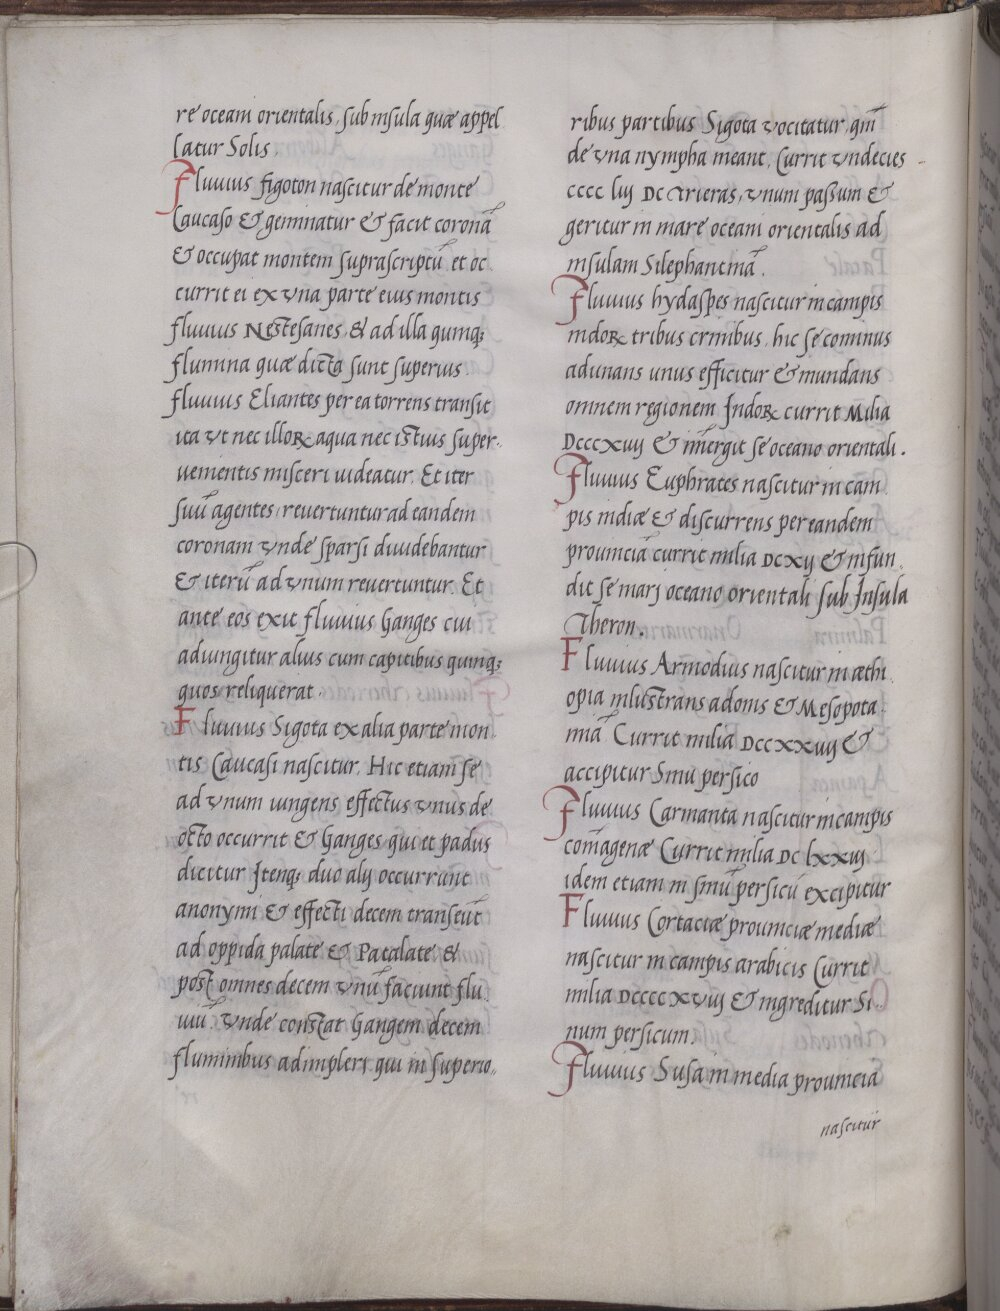 re oceani orientalis, sub insula quæ appel
latur Solis.
Fluuius figoton nascitur de monte
Caucaso & geminatur & facit coronā
& occupat montem suprascriptū et oc
currit ei ex vna parte eius montis
fluuius Nestesanes, & ad illa quinq;
flumina quæ dicta sunt superius.
fluuius Eliantes per ea torrens transit
ita vt nec illoꝝ aqua nec istius super
uenientis misceri uideatur. Et iter
suū agentes reuertuntur ad eandem
coronam vnde sparsi diuidebantur
& iterū ad vnum reuertuntur. Et
ante eos exit fluuius Ganges cui
adiungitur alius cum capitibus quinq;
quos reliquerat.
Fluuius Sigota ex alia parte mon
tis Caucasi nascitur. Hic etiam se
ad vnum iungens effectus vnus de
octo occurrit & Ganges qui et padus
dicitur Itenq; duo alij occurrunt
anonymi & effecti decem transeūt
ad oppida palate & Patalate, &
post omnes decem vnū faciunt flu
uiū. vnde constat Gangem decem
fluminibus adimpleri qui in superio
ribus partibus Sigota vocitatur qm̄
de vna nympha meant. Currit vndecies
cccc lij DC Trieras, vnum passum &
geritur in mare oceani orientalis ad
insulam Silephantinā.
Fluuius hydaspes nascitur in campis
indoꝝ tribus crinibus, hic se cominus
adunans unus efficitur & mundans
omnem regionem Indoꝝ currit Milia
Dcccxuij & īmergit se oceano orientali.
Fluuius Euphrates nascitur in cam
pis indiæ & discurrens per eandem
prouinciā currit milia DCXij & infun
dit se mari oceano orientali sub Insula
Theron.
Fluuius Armodius nascitur in æthi
opia inlustrans adonis & Mesopota
miā. Currit milia DCCXXuij &
accipitur Sinu persico
Fluuius Carmanta nascitur in campis
comāgenæ Currit milia DC lxxiij
idem etiam in sinū persicū excipitur
Fluuius Cortaciæ prouinciæ mediæ
nascitur in campis arabicis Currit
milia DCCCCXViij & ingreditur Si
num persicum.
Fluuius Susa in media prouincia
nascitur